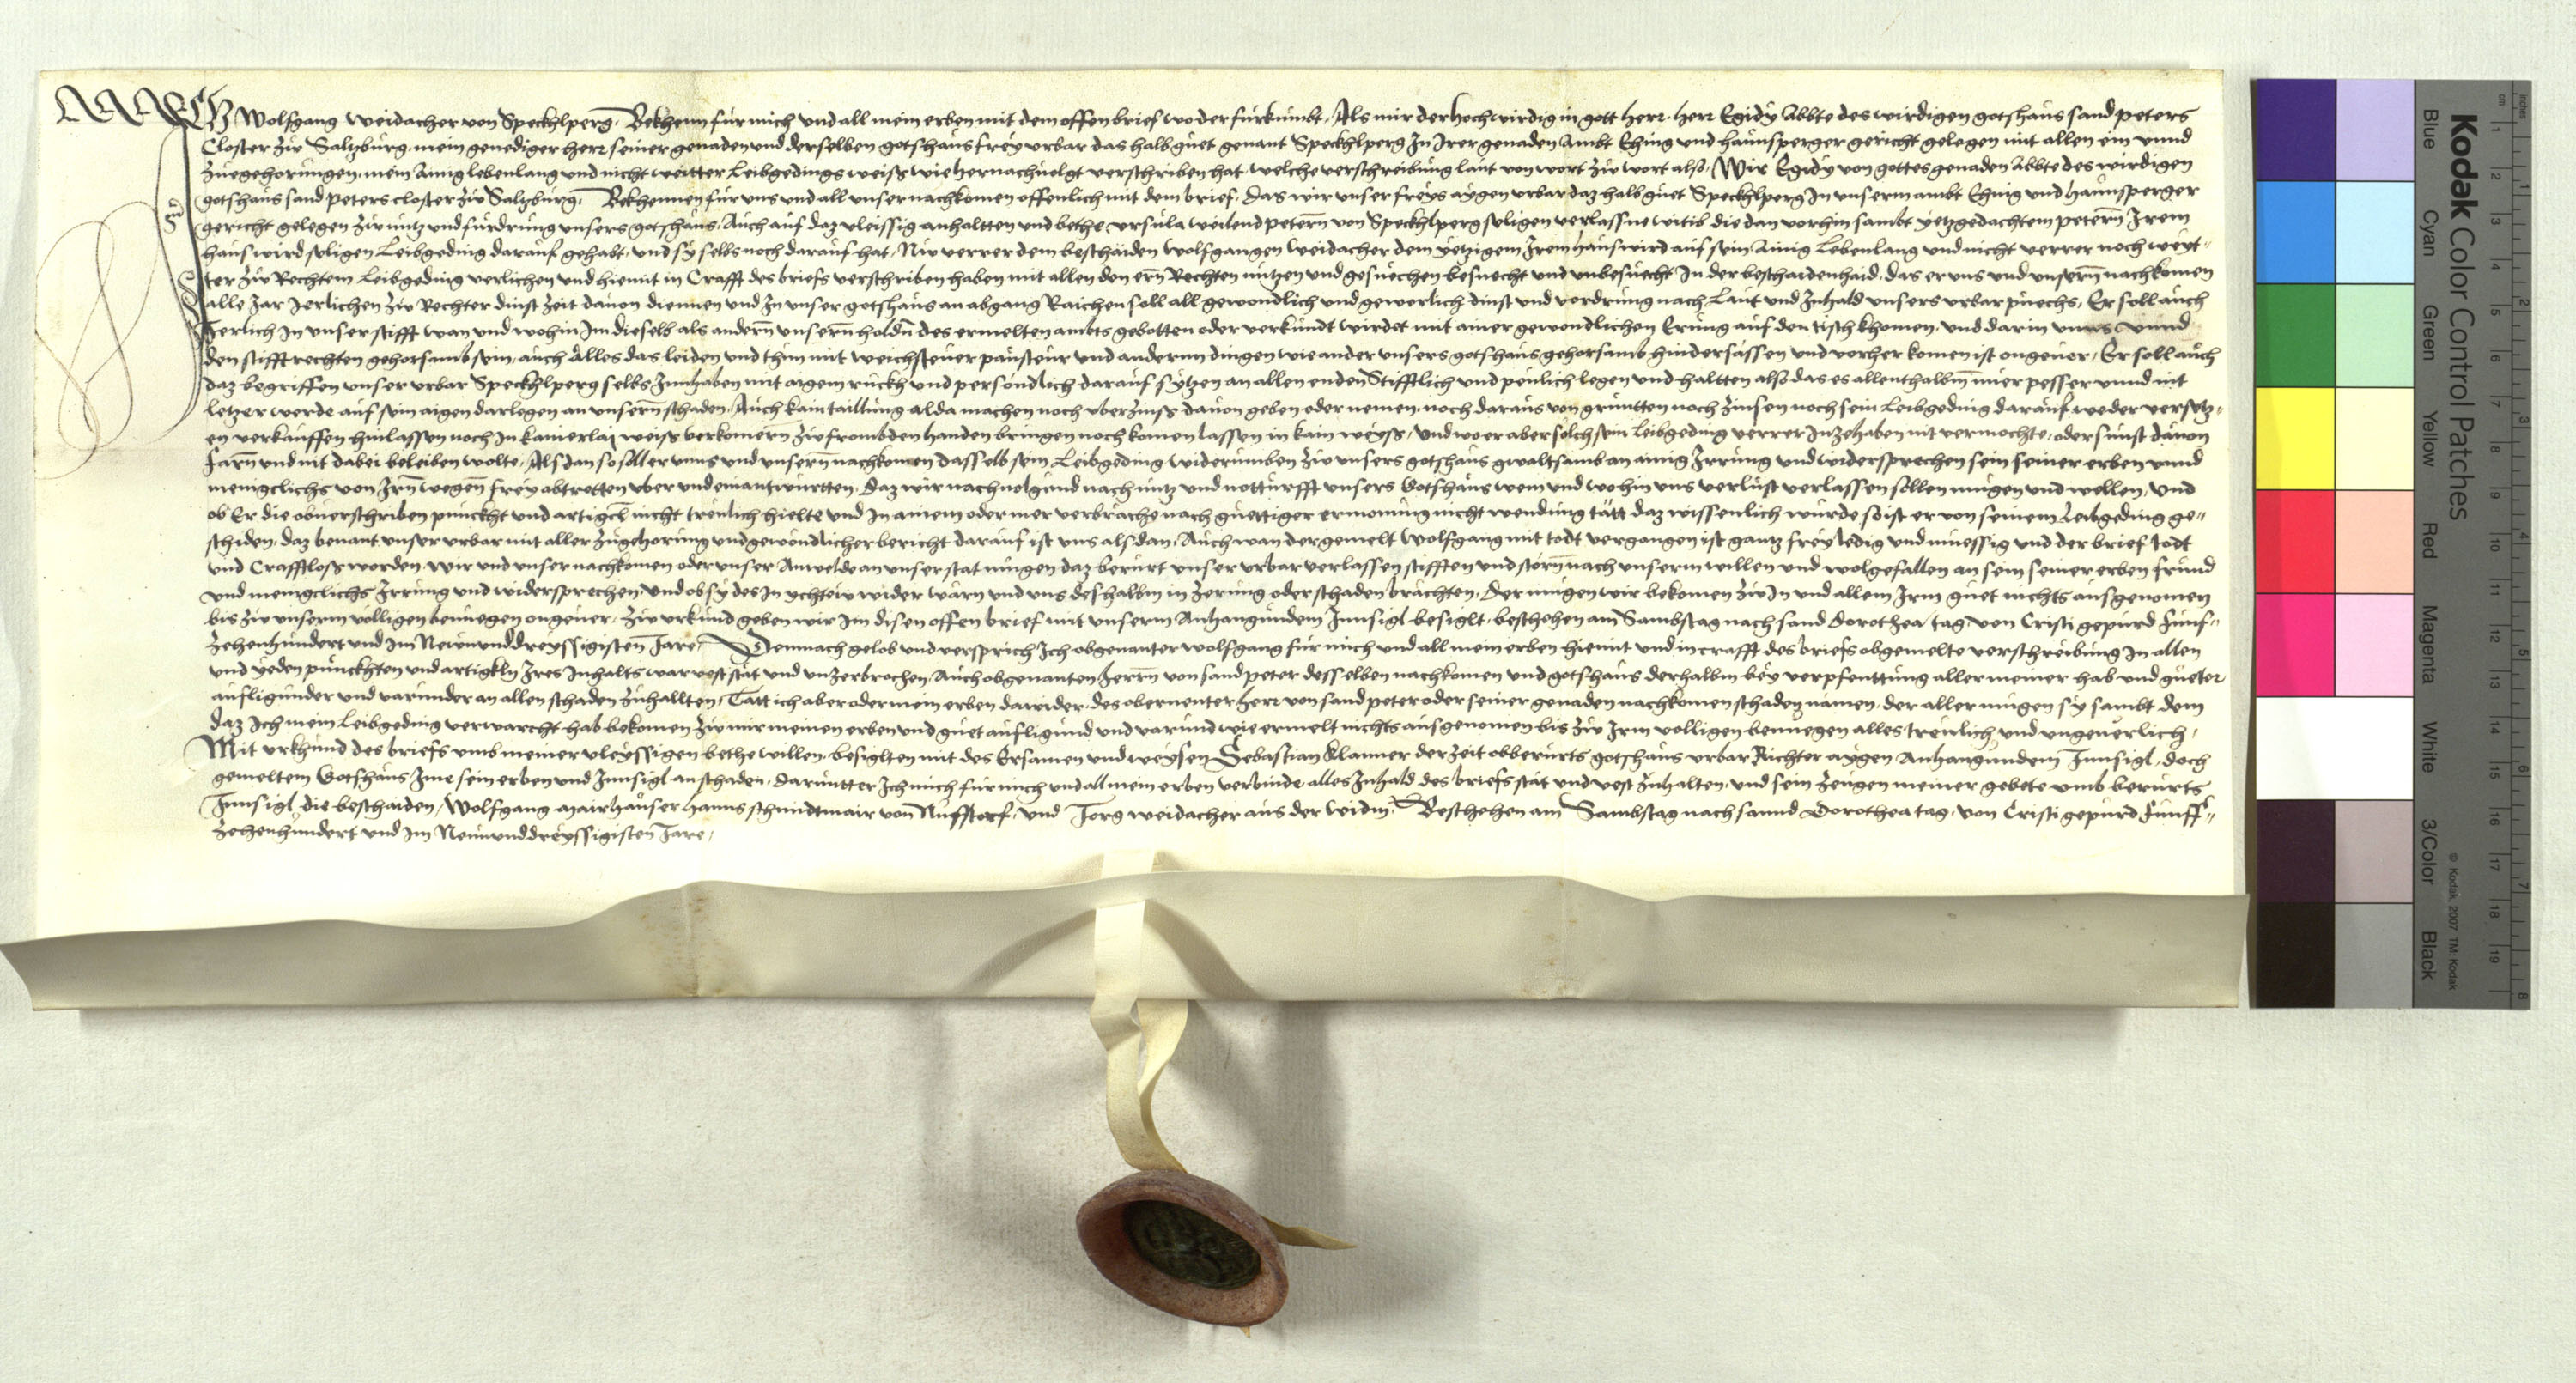 ICH Wolfgang Weidacher von Speckhlperg Bekhenn für mich und all mein erben mit dem offen brief wo der fürkümbt, Als mir der hochwirdig in gott herr herr Egidÿ Abbte des wirdigen gotshaüs sand peters
Closter zw Saltzbürg mein genediger herr seiner genaden und derselben gotshaüs freÿ urbar das halb güet genant Speckhlperg In Irer genaden Ambt Ehing und haünsperger gericht gelegen mit allen ein unnd
züegehorüngen, mein Ainig lebenlang und nicht weitter Leibgedings weiss wie hernachuolgt verschriben hat, welche verschreibüng laüt von wort zw wort also, Wir Egidÿ von gottes genaden Abbte des wirdigen
gotshaüs sand peters closter zw Saltzbürg, Bekhennen für uns und all unser nachkomen offenlich mit dem brief, das wir unser freÿs aÿgen urbar daz halb güet Speckhlperg In unserm ambt Ehing und haünsperger
gericht gelegen zw nütz und fürdrüng unsers gotshaüs, Aüch aüf daz vleissig anhaltten und bethe ursüla weilend petern̄ von Speckhlperg säligen verlassne witib die dan vorhin sambt yetzgedachtem petern̄ Irem
haüswird säligen Leibgeding daraüf gehabt, und sÿ selbs noch daraüf hat, Nw verrer dem beschaiden Wolfgangen Weidacher dem yetzigem Irem haüswird aüf sein Ainig Lebenlang und nicht verrer noch weyt-
ter zw Rechtem Leibgeding verlichen und hiemit in Crafft des briefs verschriben haben mit allen den ern̄ Rechten nützen und gesüechen besüecht und unbesüecht In der beschaidenhaid, das er uns und unsern̄ nachkomen
alle Jar Jerlichen zw Rechter dinst zeit dauon diennen und In unser gotshaüs an abgang Raichen soll all gewondlich und gewerlich dinst und vordrüng nach Laüt und Inhald unsers urbar püechs, Er soll aüch
Jerlich In unser stifft wan und wohin Im dieselb als andern̄ unsern̄ holdn̄ des ermelten ambts gebotten oder verkündt wirdet mit ainer gewondlichen Erüng aüf den tisch khomen, und darin unns unnd
den stifftrechten gehorsamb sein, aüch Alles das leiden und thün mit weichsteüer paüsteür und anderm dingen wie ander unsers gotshaüs gehorsamb hindersässen und vorher komen ist ongeuer, Er soll aüch
daz begriffen unser urbar Speckhlperg selbs Innhaben mit aigem rückh und persondlich daraüf sÿtzen an allen enden Stifftlich und peülich legen und haltten also das es allenthalbm̄ ymer pesser unnd nit
letzer werde aüf sein aigen darlegen an unsern̄ schaden, Aüch kain taillüng alda machen noch uberzinss dauon geben oder nemen, noch daraüs von grüntten noch zinsen noch sein Leibgeding daraüf weder versetz-
en verkaüffen hinlassen noch In kainerlaj weiss verkomern̄ zw frombden handen bringen noch komen lassen in kain weÿss, Und wo er aber solch sein Leibgeding verrer Inzehaben nit vermochte, oder sünst dauon
farn̄ und nit dabei beleiben wolte, Als dan so soll er unns und unsern̄ nachkomen dasselb sein Leibgeding widerümben zw unsers gotshaüs gwaltsamb an ainig Irrüng und widersprechen sein seiner erben unnd
menigclichs von Irn̄ wegen̄ freÿ abtretten uber und einantwürtten, daz wir nachuolgund nach nütz und nottürfft unsers Gotshaüs wem und wohin uns verlüst verlassen sollen mügen und wellen, Und
ob Er die obuerschriben pünckht und artigcl nicht treülich hielte und In ainem oder mer verbräche nach güettiger ermonüng nicht wendüng tätt daz wissenlich würde, so ist er von seinem Leibgeding ge-
schiden, daz benant unser urbar mit aller zügehorüng und gewondlicher bericht daraüf ist uns als dan, Aüch wan der gemelt Wolfgang mit todt vergangen ist gantz freÿ ledig und müessig und der brief todt
und Crafftloss worden, wir und unser nachkomen oder unser Anwelde an unser stat mügen daz berürt unser urbar verlassen stifften und störn̄ nach unserm willen und wolgefallen an sein seiner erben fründ
und menigclichs Irrüng und widersprechen, Und ob sÿ des In ychtew wider wärn und uns deshalbm in zerüng oder schaden brächten, Der mügen wir bekomen zw In und allem Irm güet nichts aüsgenomen
bis zw unserm volligen benüegen ongeuer, zw urkünd geben wir Im disen offen brief mit unserm Anhangündem Innsigl besiglt, beschehen am Sambstag nach sand Dorothea tag von Cristi gepürd fünf-
zehenhündert und Im Neünunddreÿssigisten Jare, Demnach gelob und versprich Ich obgenanter Wolfgang für mich und all mein erben hiemit und in crafft des briefs obgemelte verschreibüng In allen
und yeden pünckhten und artigkln̄ Ires Inhalts war vest stät und unzerbrochen, Aüch obgenanten herrn̄ von sand peter desselben nachkomen und gotshaüs derhalbm beÿ verpfenttüng aller meiner hab und güeter
aüfligünder und varünder an allen schaden zühallten, Tätt ich aber oder mein erben dawider, des obernenter herr von sand peter oder seiner genaden nachkomen schaden nämen, der aller mügen sÿ sambt dem
daz Ich mein Leibgeding verwürcht hab bekomen zw mir meinen erben und güet aüfligünd und varünd wie ermelt nichts aüsgenomen bis zw Irm volligen benüegen alles treülich und ungeuerlich,
Mit urkhünd des briefs umb meiner vleÿssigen bethe willen, besiglten mit des Ersamen und weÿsen Sebastian Klanner der zeit obberürts gotshaüs urbar Richter aÿgen Anhangundem Innsigl, doch
gemeltem Gotshaüs Ime sein erben und Innsigl an schaden, darüntter Ich mich für mich und all mein erben verbinde alles Inhald des briefs stät und vest zuhalten, und sein zeügen meiner gebete umb berürts
Innsigl die beschaiden, Wolfgang Mairhaüser Hanns schmidtmair von Nüsstorf und Jorg Weidacher aüs der Widm, Beschehen am Sambstag nach sannd Dorothea tag, von Cristi gepürd Fünff-
zehenhündert und Im Neünunddreÿssigisten Jare,
Kodak Color Control Patches
Blue Cyan Green Yellow Red Magenta White 3/Color Black
© Kodak, 2007 TM: Kodak
cm 1 2 3 4 5 6 7 8 9 10 11 12 13 14 15 16 17 18 19
inches 1 2 3 4 5 6 7 8